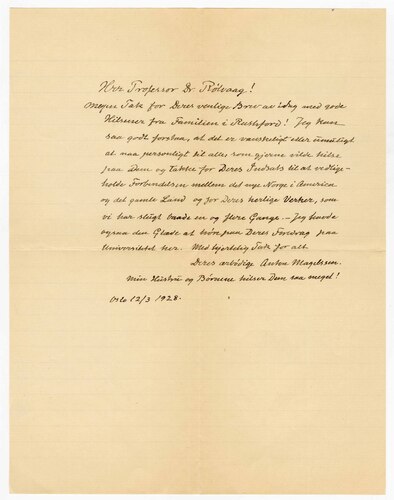 Herr Professor Dr. Rölvaag!
Megen Tak for Deres venlige Brev av idag med gode
Hilsener fra Familien i Rushford! Jeg kan
saa godt forstaa, at det er vanskeligt eller umuligt
at naa personligt til alle, som gjerne vilde hilse
paa Dem og takke for Deres Indsats til at vedlige-
holde Forbindelsen mellem det nye Norge i America
og det gamle Land og for Deres herlige Verker, som
vi har slugt baade en og flere Gange. – Jeg havde
ogsaa den Glæde at höre paa Deres Foredrag paa
Universitetet her. Med hjertelig Tak for alt
Deres ærbödige Anton Magelssen.
Min Hustru og Börnene hilser Dem saa meget!
Oslo 12/3 1928.